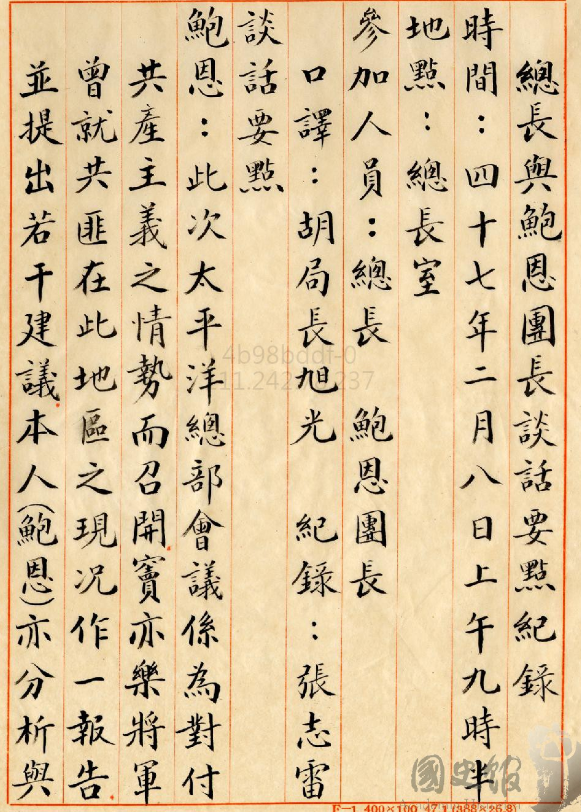 總長與鮑恩團長談話要點紀錄
時間：四十七年二月八日上午九時半
地點：總長室
參加人員：總長　鮑恩團長
口譯：胡局長旭光　紀錄：張志雷
談話要點
鮑恩：此次太平洋總部會議係為對付
共產主義之情勢而召開竇亦樂將軍
曾就共匪在此地區之現況作一報告
並提出若干建議本人(鮑恩)亦分析與
國史館